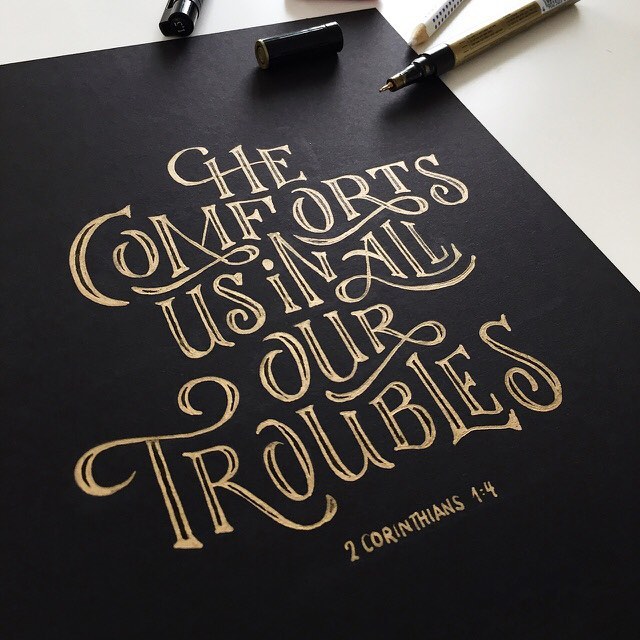 HE
COMFORTS
US IN ALL
OUR
TROUBLES
2 CORINTHIANS 1:4